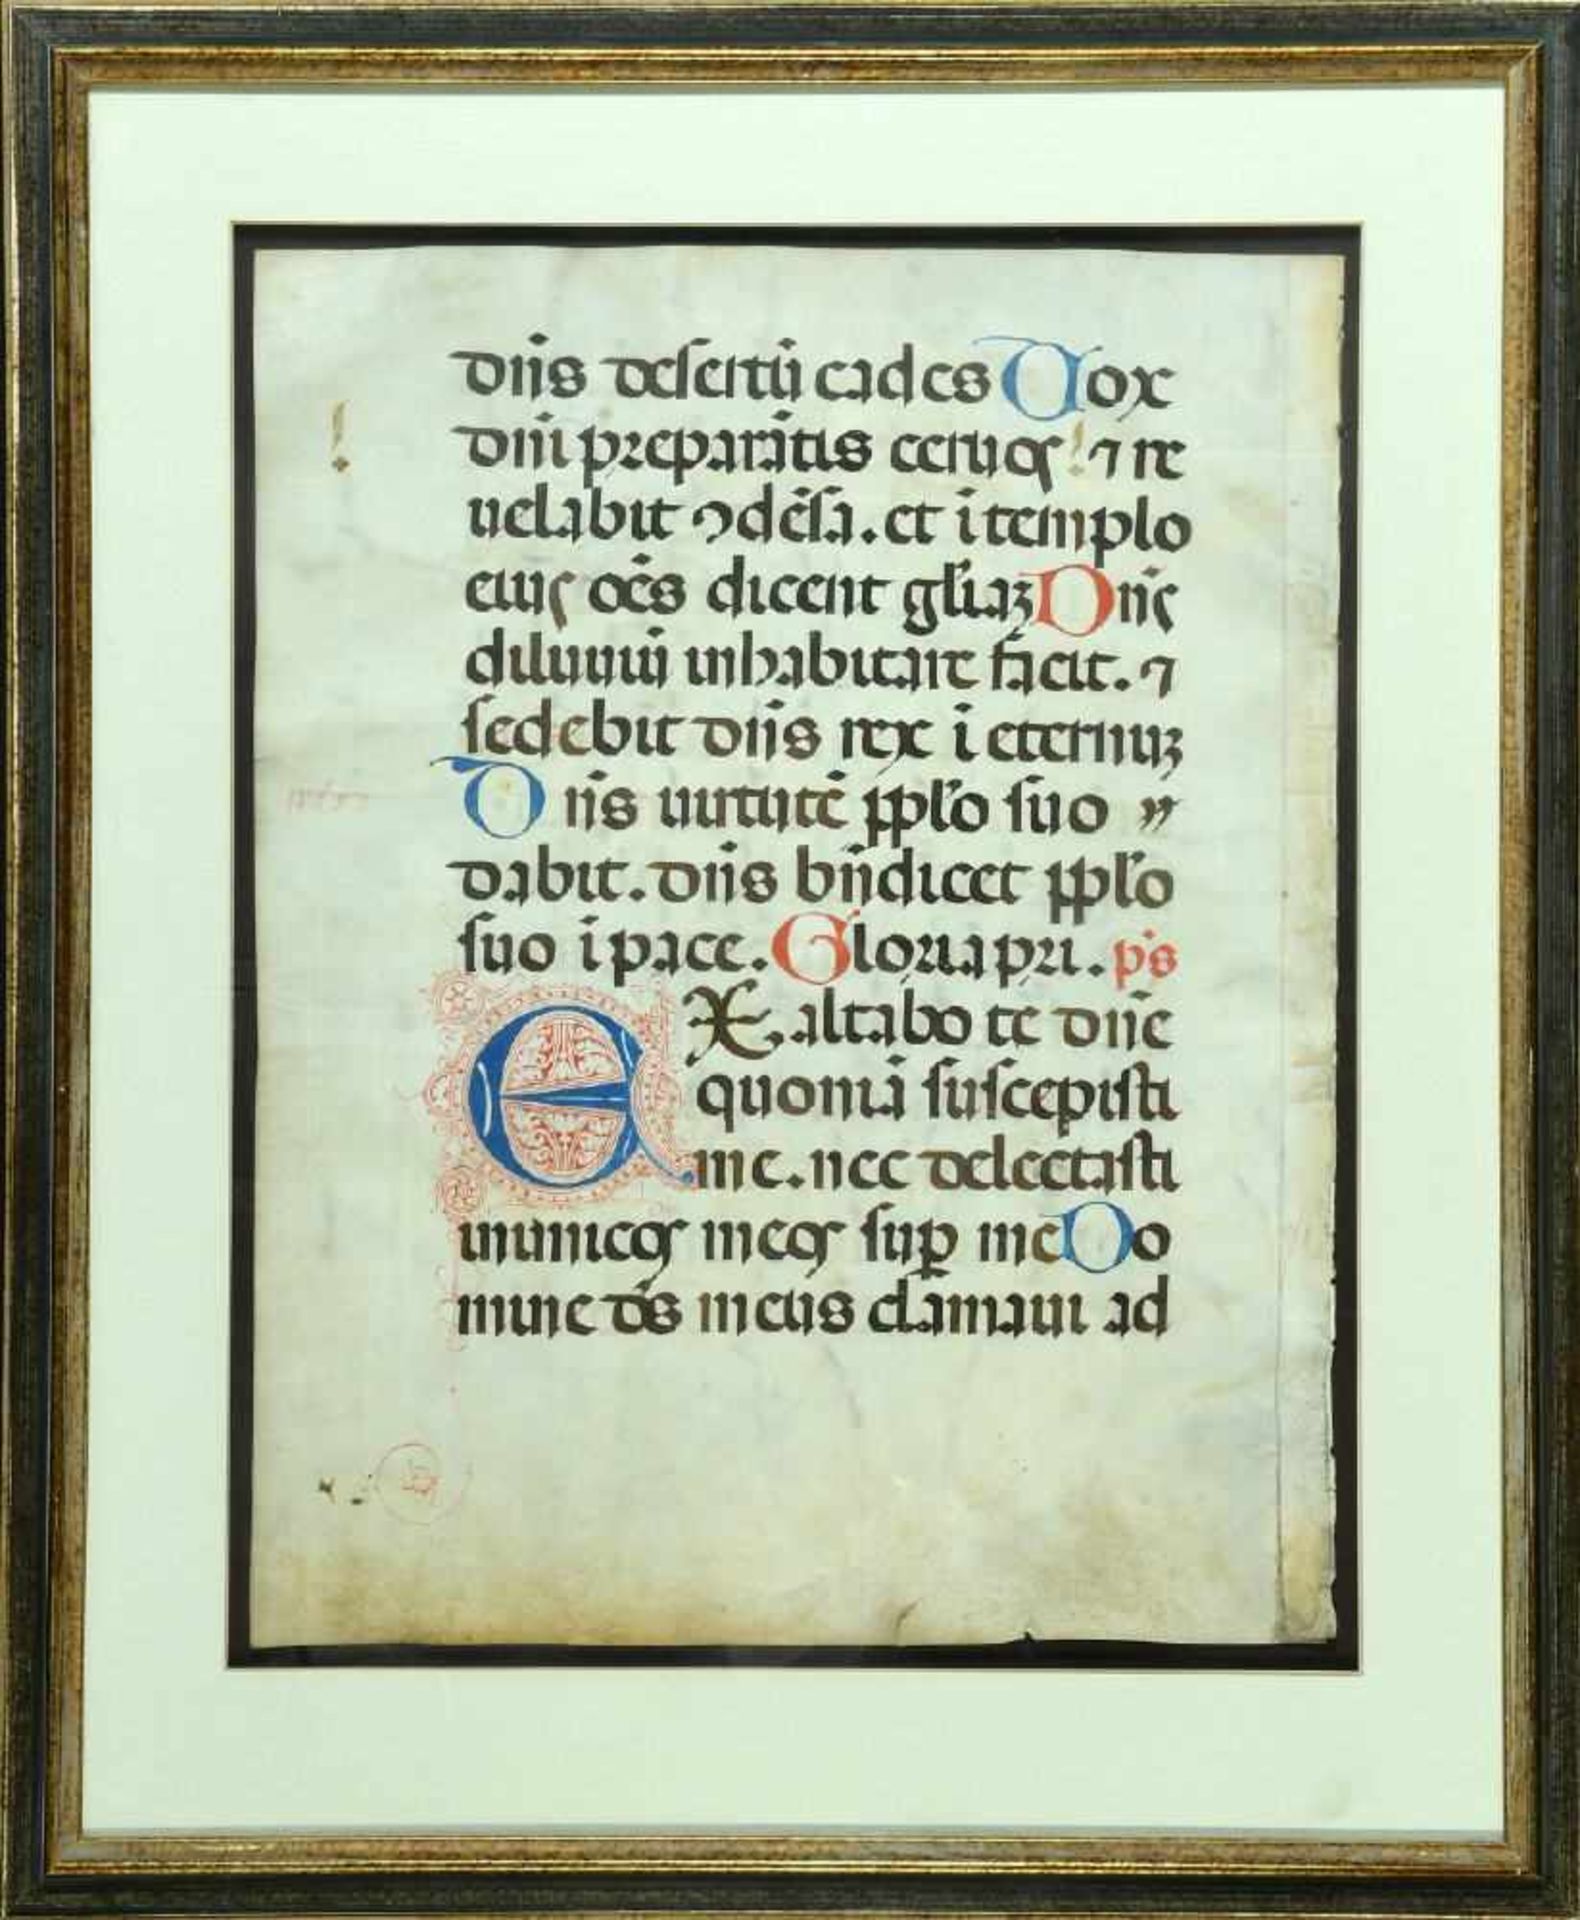 dñs desertū cades Uox
dñi prepar̄atis ceruos ⁊ re
uelabit ꝯdēsa. et ī templo
eius oēs dicent gl̄iaꝫ Dñs
diluuiū inhabitare facit. ⁊
sedebit dñs rex ī eternuꝫ
Dñs uirtutē ppl̄o suo
dabit. dñs bn̄dicet ppl̄o
suo ī pace. Gloria pri. p̄s
EXaltabo te dñe
quoniā suscepisti
me. nec delectasti
inimicos meos suꝑ me Do
mine d̄s meus clamaui ad